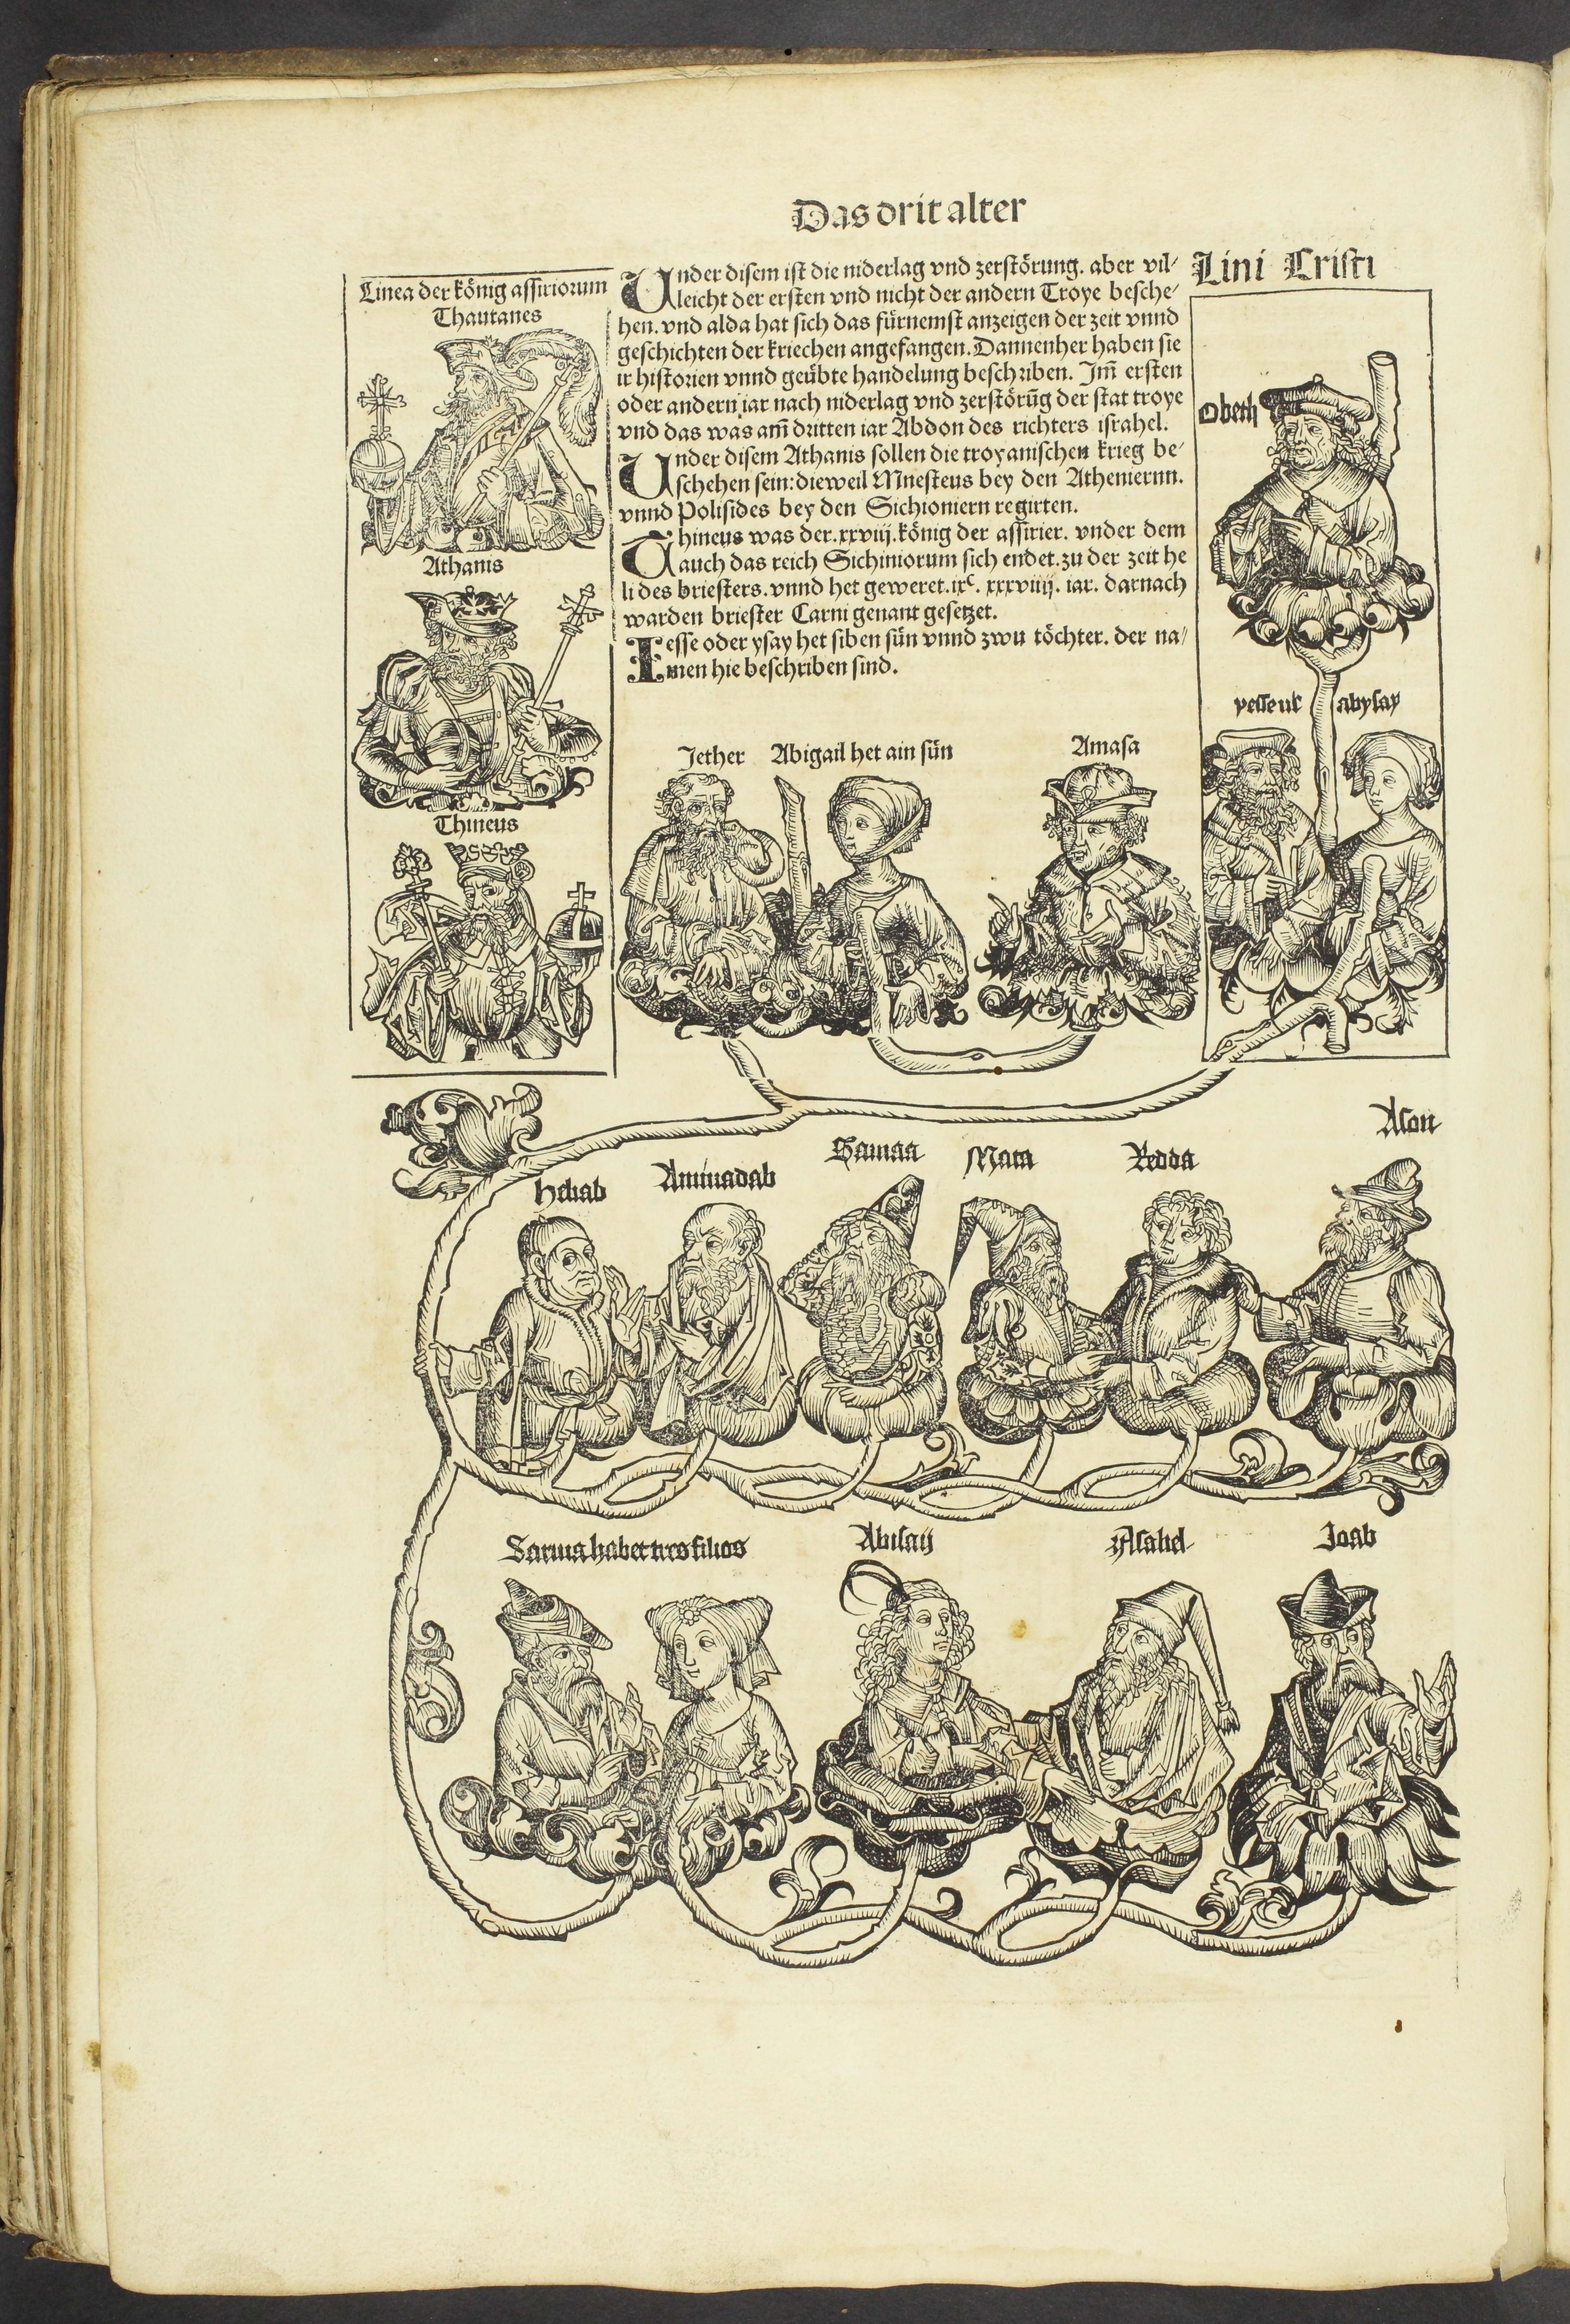 Das drit alter
Linea der könig assiriorum
Thautanes
Athanis
Thineus
Under disem ist die niderlag vnd zerstörung. aber vil/
leicht der ersten vnd nicht der andern Troye besche/
hen. vnd alda hat sich das fürnemst anzeigen der zeit vnnd
geschichten der kriechen angefangen. Dannenher haben sie
ir historien vnnd geübte handelung beschriben. Im̄ ersten
oder andern iar nach niderlag vnd zerstörūg der stat troye
vnd das was am̄ dritten iar Abdon des richters israhel.
Under disem Athanis sollen die troyanischen krieg be/
schehen sein: dieweil Mnesteus bey den Atheniernn.
vnnd Polisides bey den Sichioniern regirten.
Thineus was der .xxviij. könig der assirier. vnder dem
auch das reich Sichiniorum sich endet. zu der zeit he
li des briesters. vnnd het geweret .ixᶜ. xxxviiij. iar. darnach
warden briester Carni genant gesetzet.
Iesse oder ysay het siben sün vnnd zwu töchter. der na/
men hie beschriben sind.
Lini Cristi
Obeth
abysay
Jether Abigail het ain sün Amasa
Heliab Aminadab Samaa Mata Redda Ason
Saruia habet tres filios Abisaij Asahel Joab